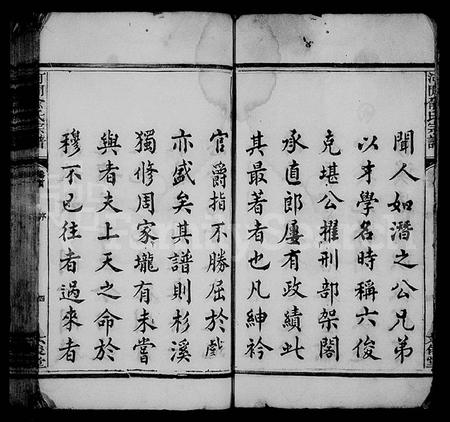 聞人如潛之公兄弟
以才學名時稱六俊
克堪公擢刑部架閣
承直郎屢有政績此
其最著者也凡紳衿
官爵指不勝屈於戲
亦盛矣其譜則杉溪
獨修周家壠有未當
與者夫上天之命於
穆不已往者過來者
序
四